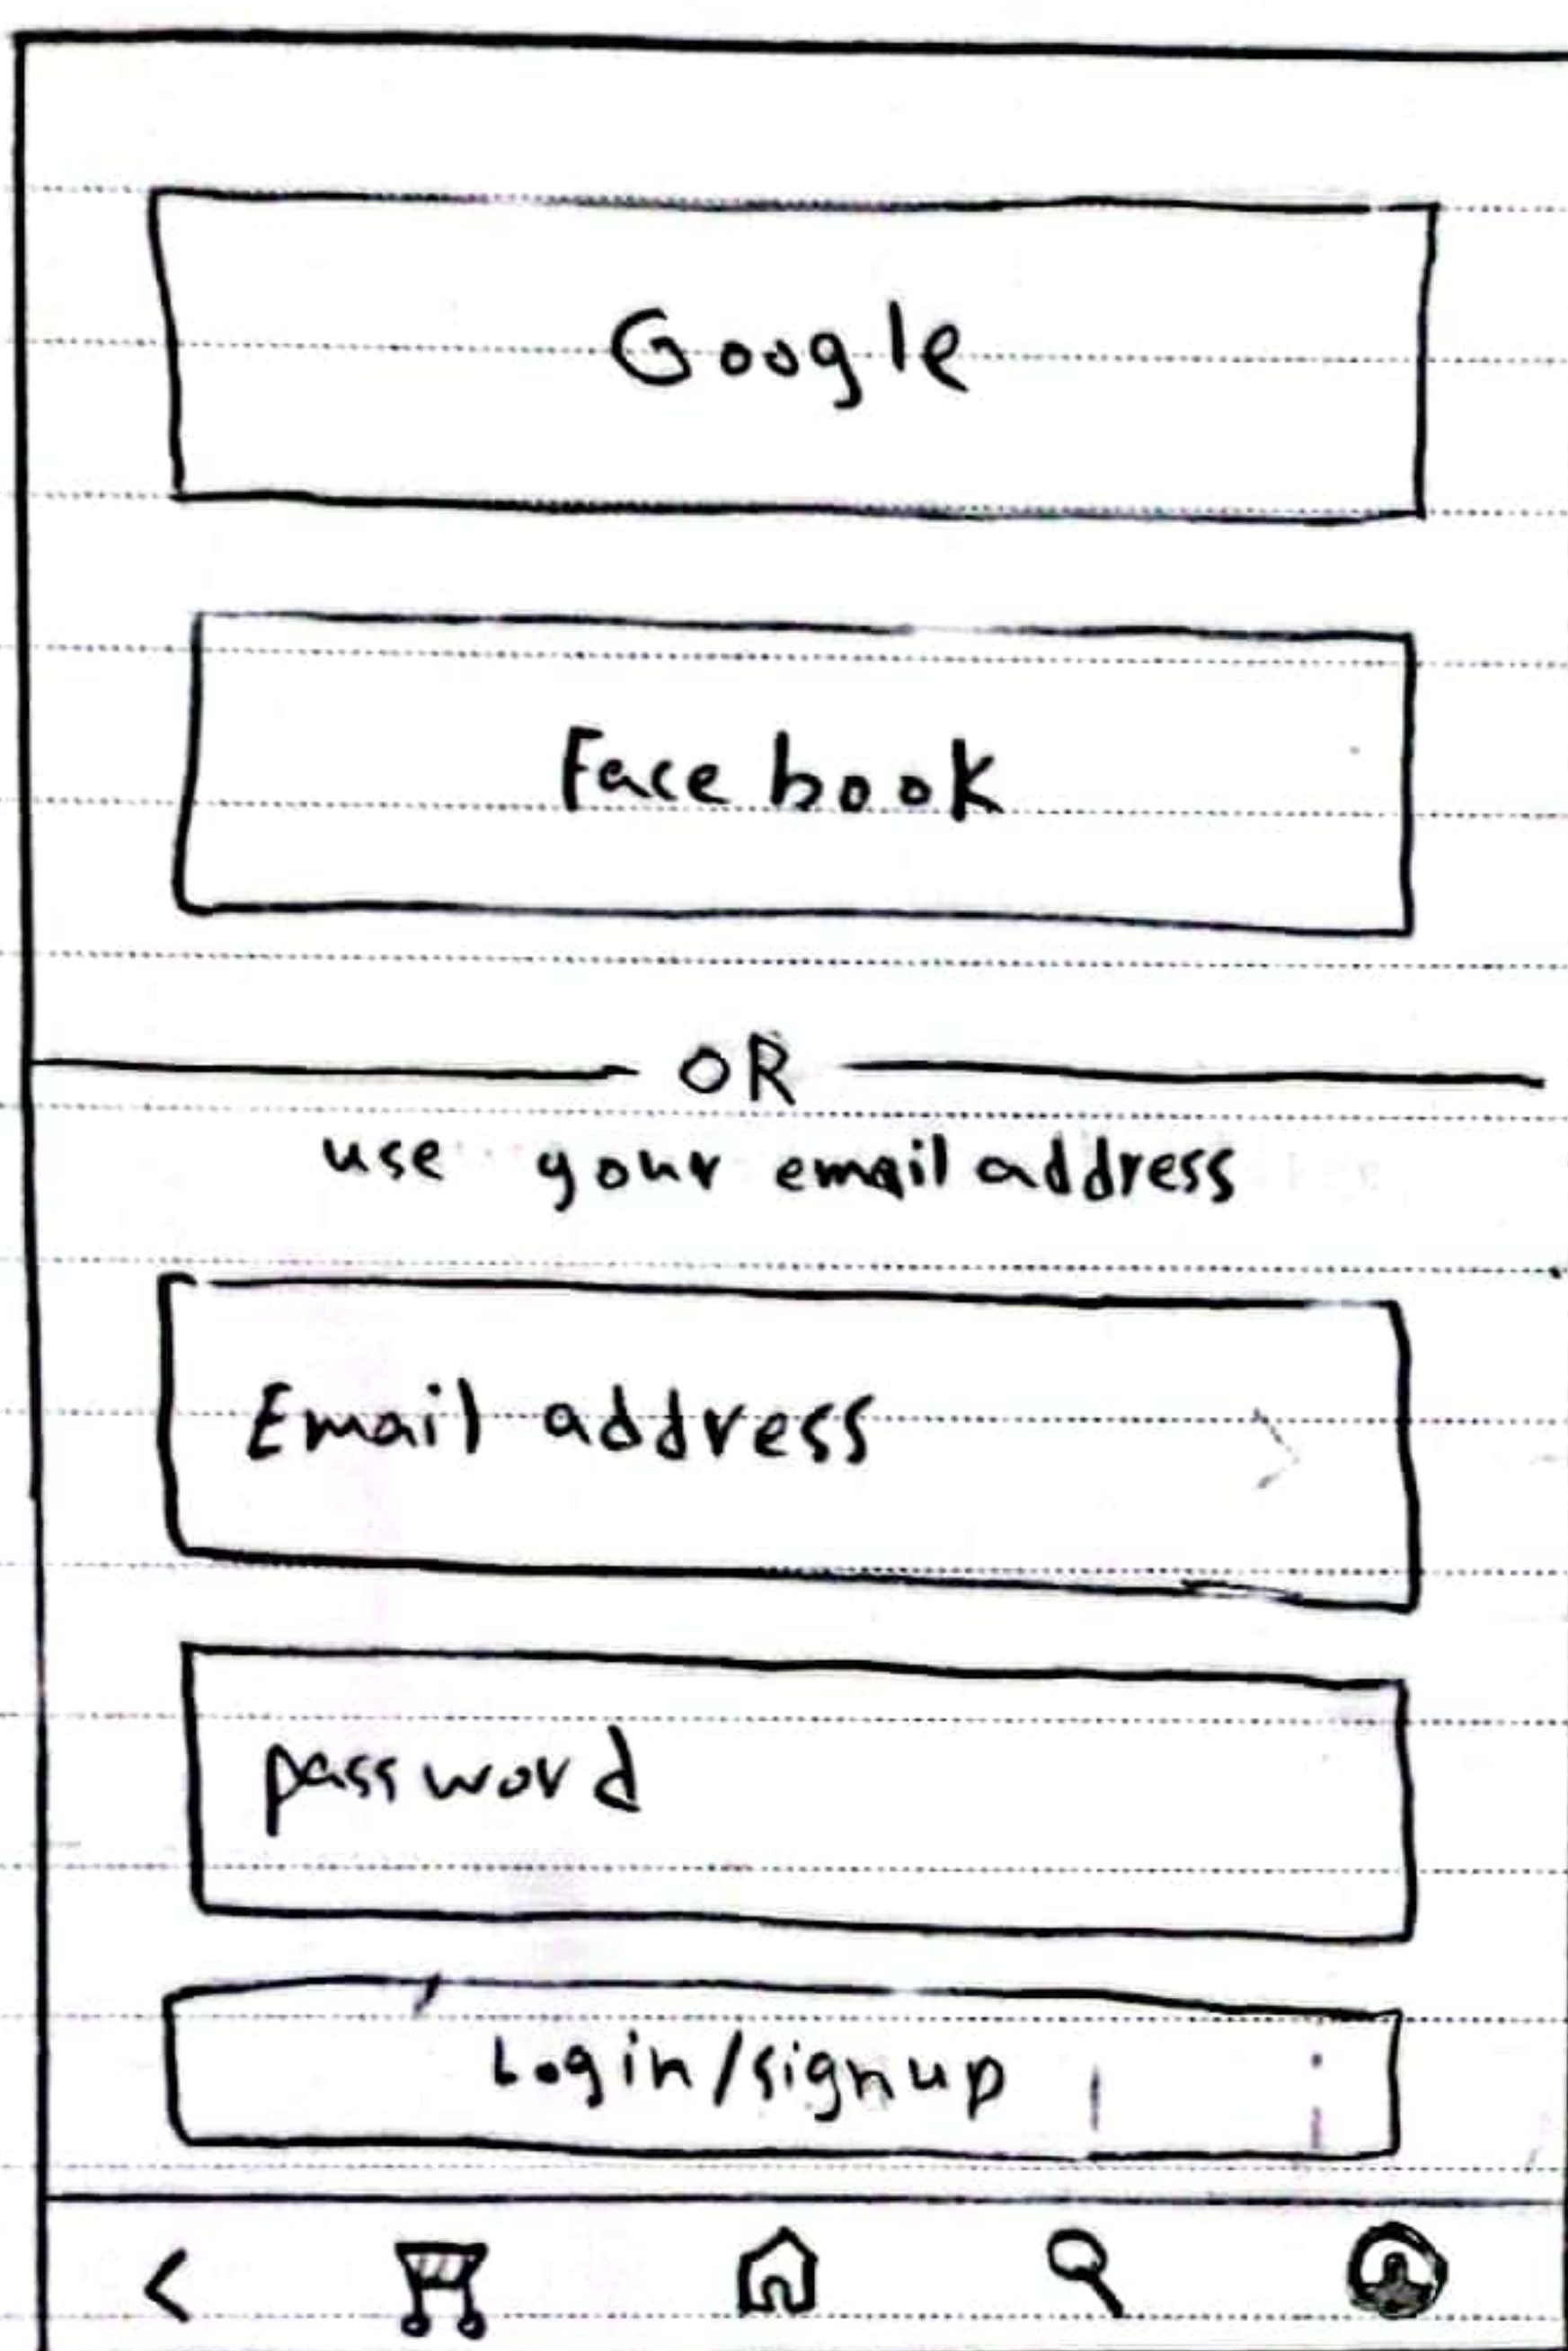 Google
Facebook
OR
use your email address
Email address
password
Login/signup